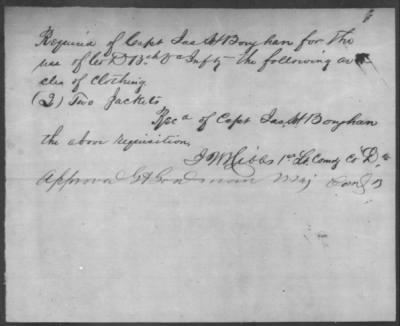 Required of Capt Jas H Boughan for the
use of Co D 13th Va Infty the following arti
cles of Clothing
(2) Two Jackets
Recd of Capt Jas H Boughan
the above requisition
J W Gibbs 1st Lt Comdg Co "D"
Approved G A Goodman Maj Comdg